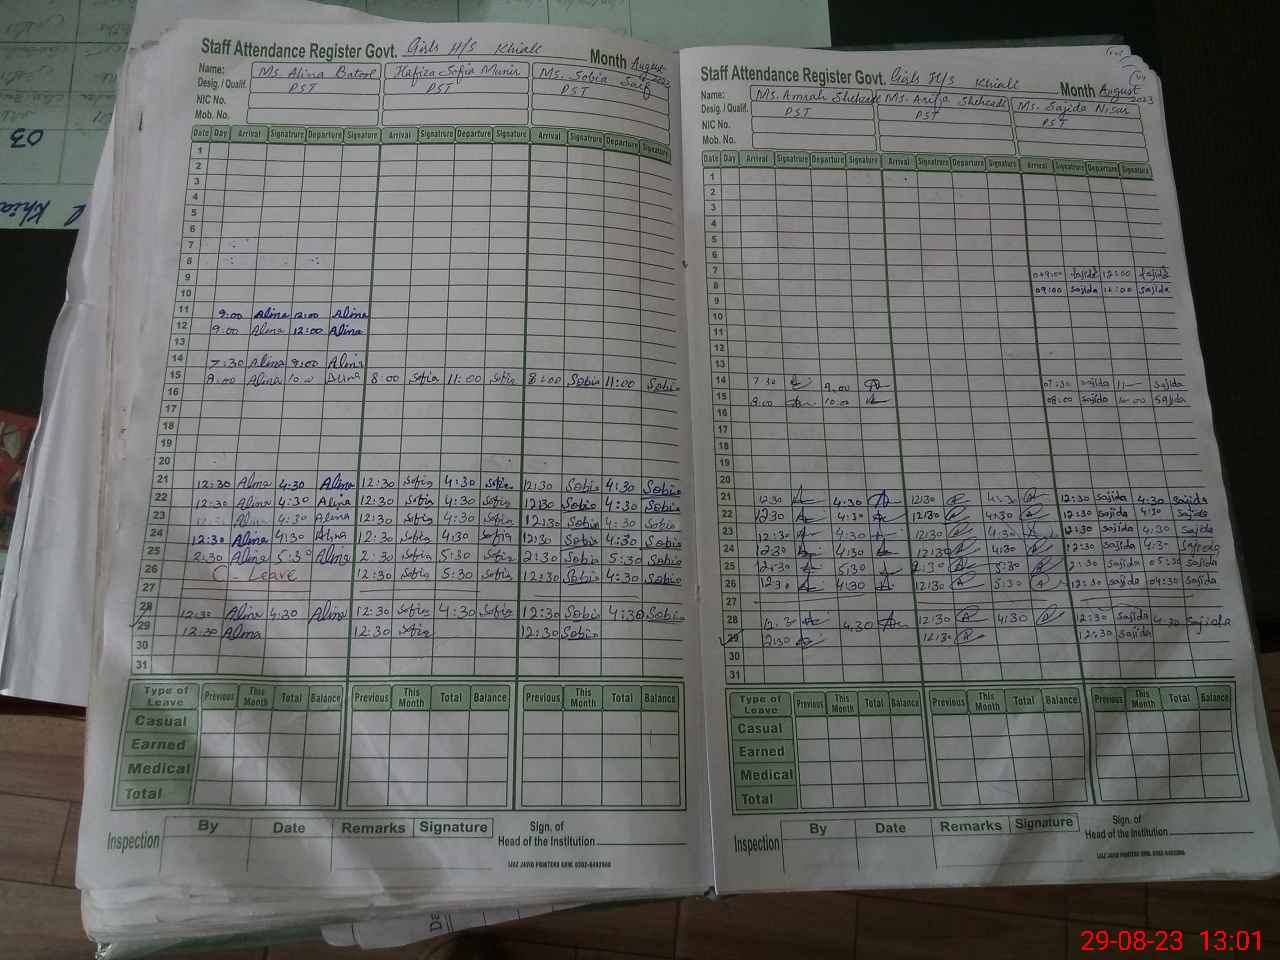 Staff Attendance Register Govt. Girls H/S Khiali Month August 2023
Name: Ms. Alina Batool Hafiza Sofia Munir Ms. Sobia Saif
Desig./ Qualif. PST PST PST
NIC No.
Mob. No.
Date Day Arrival Signatrure Departure Signature Arrival Signatrure Departure Signature Arrival Signatrure Departure Signature
1
2
3
4
5
6
7
8
9
10
11 9:00 Alina 12:00 Alina
12 9:00 Alina 12:00 Alina
13
14 7:30 Alina 9:00 Alina
15 8:00 Alina Alina 8:00 Sofia 11:00 Sofia 8:00 Sobia 11:00 Sobia
16
17
18
19
20
21 12:30 Alina 4:30 Alina 12:30 Sofia 4:30 Sofia 12:30 Sobia 4:30 Sobia
22 12:30 Alina 4:30 Alina 12:30 Sofia 4:30 Sofia 12:30 Sobia 4:30 Sobia
23 Alina 4:30 Alina 12:30 Sofia 4:30 Sofia 12:30 Sobia 4:30 Sobia
24 12:30 Alina 4:30 Alina 12:30 Sofia 4:30 Sofia 12:30 Sobia 4:30 Sobia
25 2:30 Alina 5:30 Alina 2:30 Sofia 5:30 Sofia 2:30 Sobia 5:30 Sobia
26 C - Leave 12:30 Sofia 5:30 Sofia 12:30 Sobia 4:30 Sobia
27
28 12:30 Alina 4:30 Alina 12:30 Sofia 4:30 Sofia 12:30 Sobia 4:30 Sobia
29 12:30 Alina 12:30 Sofia 12:30 Sobia
30
31
Type of Leave Previous This Month Total Balance Previous This Month Total Balance Previous This Month Total Balance
Casual
Earned
Medical
Total
Inspection By Date Remarks Signature Sign. of
Head of the Institution
IJAZ JAVID PRINTERS GRW. 0302-6492960
Staff Attendance Register Govt. Girls H/S Khiali Month August 2023
Name: Ms. Amnah Shehzadi Ms. Arifa Shehzadi Ms. Sajida Nisar
Desig./ Qualif. PST PST PST
NIC No.
Mob. No.
Date Day Arrival Signatrure Departure Signature Arrival Signatrure Departure Signature Arrival Signatrure Departure Signature
1
2
3
4
5
6
7 09:00 Sajida 12:00 Sajida
8 09:00 Sajida 12:00 Sajida
9
10
11
12
13
14 7:30 9:00 07:30 Sajida 11 Sajida
15 8:00 10:00 08:00 Sajida Sajida
16
17
18
19
20
21 12:30 4:30 12:30 4:30 12:30 Sajida 4:30 Sajida
22 12:30 4:30 12:30 4:30 12:30 Sajida 4:30 Sajida
23 12:30 4:30 12:30 4:30 12:30 Sajida 4:30 Sajida
24 12:30 4:30 12:30 4:30 12:30 Sajida 4:30 Sajida
25 5:30 2:30 5:30 2:30 Sajida 05:30 Sajida
26 12:30 4:30 12:30 5:30 12:30 Sajida 04:30 Sajida
27
28 12:30 4:30 12:30 4:30 12:30 Sajida 4:30 Sajida
29 12:30 12:30 12:30 Sajida
30
31
Type of Leave Previous This Month Total Balance Previous This Month Total Balance Previous This Month Total Balance
Casual
Earned
Medical
Total
Inspection By Date Remarks Signature Sign. of
Head of the Institution
IJAZ JAVID PRINTERS GRW. 0302-6492960
03
29-08-23 13:01